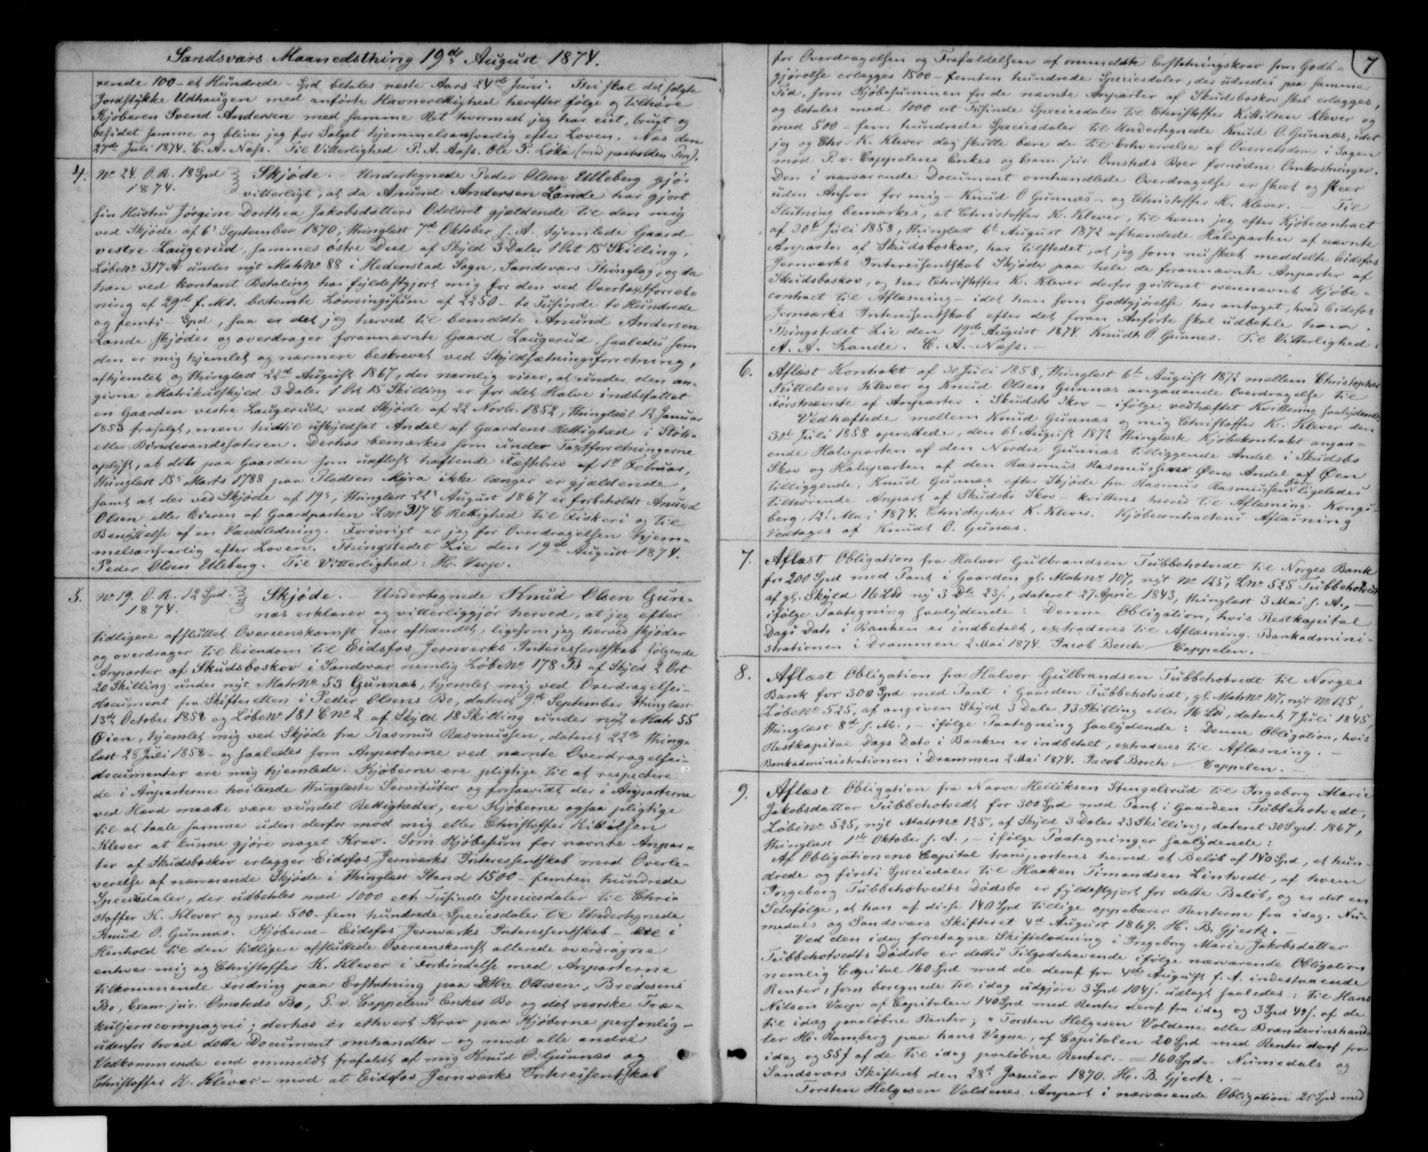 Sandsværs Maanedsthing 19de August 1874.
rende 100 - et Hundrede - Spd betales næste Aars 24de Juni. Thi skal det solgte
Jordstykke Udhaugen med anførte Havnerettighed herefter følge og tilhøre
Kjøberen Svend Andersen med samme Ret hvormed jeg har eiet, brugt og
besiddet samme og bliver jeg for Salget hjemmelsansvarlig efter Loven. Næs den
27de Juli 1874. C. A. Næss. Til Vitterlighed P. A. Aass. Ole P. Løka (med paaholden Pen).
4. No 24. O. R. 18 Spd 1874. Skjøde. - Undertegnede Peder Olsen Ulleberg gjør
vitterligt, at da Anund Andersen Lande har gjort
sin Hustru Jørgine Dorthea Jakobsdatters Odelsret gjældende til den mig
ved Skjøde af 6te September 1870, thinglæst 7de Oktober s. A. hjemlede Gaard
vestre Laugerud, sammes østre Deel af Skyld 3 Daler 1 Ort 15 Skilling,
Løbe No 317 A under nyt Matr No 88 i Hedenstad Sogn, Sandsvær Thinglag, og da
han ved kontant Betaling har fyldestgjort mig for den ved Overtaxtforret-
ning af 29de f. Md. bestemte Løsningssum af 2250 - to Tusinde to Hundrede
og femti - Spd, saa er det jeg herved til bemeldte Anund Andersen
Lande skjøder og overdrager forannævnte Gaard Laugerud, saaledes som
den er mig hjemlet og nærmere beskrevet ved Skyldsætningsforretning,
afhjemlet og thinglæst 22de August 1867, der nærmlig viser, at under den an-
givne Matrikulskyld 3 Daler 1 Ort 15 Skilling er for det Halve indbefattet
en Gaarden vestre Laugerud ved Skjøde af 22 Novbr. 1852, thinglæst 12 Januar
1853 frasolgt, men hidtil uskyldsat Andel af Gaardens Rettighed i Støle
eller Bøndevandssæteren. Derhos bemærkes som under Taxtforretningerne
oplyst, at det paa Gaarden som uaflæst hæftende Fæstebrev af 1st Februar,
thinglæst 15de Marts 1788 paa Pladsen Myra ikke længer er gjældende,
samt at der ved Skjøde af 19de, thinglæst 22de August 1867 er forbeholdt Anund
Olsen eller Eieren af Gaardparten L No 317 C Rettighed til Fiskeri og til
Benyttelse af en Vandledning. Forøvrigt er jeg for Overdragelsen hjem-
melsansvarlig efter Loven. Thingstedet Lie den 19de August 1874.
Peder Olsen Ulleberg. Til Vitterlighed: H. Verje.
5. No 19. O. R. 12 Spd. 1874. Skjøde. Undertegnede Knud Olsen Gun-
næs erklærer og vitterliggjør herved, at jeg efter
tidligere afsluttet Overeenskomst har afhændet, ligesom jeg herved skjøder
og overdrager til Eiendom til Eidsfos Jernværks Interessentskab følgende
Anparter af Skudsboskov i Sandsvær nemlig Løbe No 178 B af Skyld 2 Ort
20 Skilling under nyt Matr No 53 Gunnæs, hjemlet mig ved Overdragelses-
document fra Skifteretten i Peder Olsens Bo, dateret 9de September thinglæst
13de October 1858 og Løbe No 181 C No 2 af Skyld 18 Skilling under nyt Matr 55
Øien, hjemlet mig ved Skjøde fra Rasmus Rasmussen, dateret 22de thing-
læst 28 Juli 1858 - og saaledes som Anparterne ved nævnte Overdragelses-
documenter ere mig hjemlede. Kjøberne ere pligtige til at respectere
de i Anparterne hvilende thinglæste Servituter og forsaavidt der i Anparterne
ved Hævd maatte være vundet Rettigheder, ere Kjøberne ogsaa pligtige
til at taale samme uden derfor mod mig eller Christoffer Kittilsen
Klever at kunne gjøre noget Krav. Som Kjøbesum for nævnte Anpar-
ter af Skudsboskov erlægger Eidsfos Jernværks Interessentskab mod Overle-
verelse af nærværende Skjøde i thinglæst Stand 1500 - femten hundrede
Speciedaler, der udbetales med 1000 et Tusinde Speciesdaler til Chris-
stoffer K. Klever og med 500 - fem hundrede Speciesdaler til Undertegnede
Knud O. Gunnæs. Kjøberne - Eidsfos Jernværks Interessentskab - ere i
Henhold til den tidligere afsluttede Overeenskomst allerede overdragne
enhver mig og Christoffer K. Klever i Forbindelse med Anparterne
tilkommende Fordring paa Erstatning paa Ditlev Ottesen, Bredesens
Bo, Exam. jur. Omsteds Bo, P. v. Cappelens Enkes Bo og det norske Træ-
kuljerncompagni; derhos er ethvert Krav paa Kjøberne personlig -
udenfor hvad dette Document omhandler - og mod alle andre
Vedkommende end ommeldt frafaldt af mig Knud O. Gunnæs og
Christoffer K. Klever - mod at Eidsfos Jernværks Interessentskab
7
for Overdragelsen og Frafaldelsen af ommeldte Erstatningskrav som Godt-
gjørelse erlægges 1500 - femten hundrede Speciesdaler, der udredes paa samme
Tid, som Kjøbesummen for de nævnte Anparter af Skudsboskov skal erlægges,
og betales med 1000 et Tusinde Speciesdaler til Christoffer Kittilsen Klever og
med 500 - fem hundrede Speciesdaler til Undertegnede Knud O. Gunnæs, idet
jeg og Chr. K. Klever dog skulle bære de til Erhvervelse af Overretsdom i Sagen
mod P. v. Cappelens Enkes og Exam. jur. Omsteds Boer fornødne Omkostninger.
Den i nærværende Document omhandlede Overdragelse er skeet og skeer
uden Ansvar for mig - Knud O Gunnæs - og Christoffer K. Klever. - Til
Slutning bemærkes, at Christoffer K. Klever, til hvem jeg efter Kjøbecontract
af 30te Juli 1858, thinglæst 6te August 1872 afhændede Halvparten af nævnte
Anparter af Skudsboskov, har tilstedet, at jeg som nu skeet meddelte Eidsfos
Jernværks Interessentskab Skjøde paa hele de forannævnte Anparter af
Skudsboskov, og har Christoffer K. Klever derfor qvitteret ovennævnt Kjøbe-
contract til Aflæsning - idet han som Godtgjørelse har antaget, hvad Eidsfos
Jernværks Interessentskab efter det foran Anførte skal udbetale ham.
Thingstedet Lie den 19de August 1874. Knudt O. Gunnes. Til Vitterlighed:
A. A. Lande. C. A. Næss.
6. Aflæst Kontrakt af 30 Juli 1858, thinglæst 6te August 1872 mellem Christopher
Kittelsen Klever og Knud Olsen Gunnæs angaaende Overdragelse til
Førstnævnte af Anparter i Skudsbo Skov - ifølge vedhæftet Kvittering saalydende:
Vedhæftede mellem Knud Gunnæs og mig Christoffer K. Klever den
30te Juli 1858 oprettede, den 6te August 1872 thinglæste Kjøbekontrakt angaa-
ende Halvparten af den Nordre Gunnæs tilliggende Andel i Skudsbo
Skov og Halvparten af den Rasmus Rasmussens Øvns Andel af Øen
tilliggende, Knud Gunnæs efter Skjøde fra Rasmus Rasmussen Øen ligeledes
tilhørende Anpart af Skudsbo Skov - kvitteres herved til Aflæsning. Kongs-
berg, 12te Mai 1874. Christopher K. Klever. Kjøbecontractens Aflæsning
vedtages af Knudt O. Gunæs.
7. Aflæst Obligation fra Halvor Gulbrandsen Tubbehotvedt til Norges Bank
for 200 Spd med Pant i Gaarden gl. Matr No 107, nyt No 125, L No 525 Tubbehotvedt
af gl. Skyld 16 Lbs ny 3 Dlr 23 s., dateret 27 April 1843, thinglæst 3 Mai s. A., -
ifølge Paategning saalydende: Denne Obligation, hvis Restkapital
Dags Dato i Banken er indbetalt, extraderes til Aflæsning. Bankadmini-
strationen i Drammen 2 Mai 1874. Jacob Borch Cappelen. -
8. Aflæst Obligation fra Halvor Gulbrandsen Tubbehotvedt til Norges
Bank for 300 Spd med Pant i Gaarden Tubbehotvedt, gl. Matr No 107, nyt No 125,
Løbe No 525, af angiven Skyld 3 Daler 23 Skilling eller 16 Lbs, dateret 7 Juli 1845,
thinglæst 8de s. Md. ifølge Paategning saalydende: Denne Obligation, hvis
Restkapital Dags Dato i Banken er indbetalt, extraderes til Aflæsning. -
Bankadministrationen i Drammen 2 Mai 1874. Jacob Borch Cappelen. -
9. Aflæst Obligation fra Narve Helliksen Stengelsrud til Ingeborg Marie
Jakobsdatter Tubbehotvedt for 300 Spd med Pant i Gaarden Tubbehotvedt,
Løbe No 525, nyt Matr No 125, af Skyld 3 Daler 23 Skilling, dateret 30 Sept. 1867,
thinglæst 1ste Oktober s. A., - ifølge Paategninger saalydende:
Af Obligationens Capital transporteres herved et Beløb af 140 Spd, et hun-
drede og fireti Speciedaler til Haaken Simondsen Lintvedt, af hvem
Ingeborg Tubbehotvedts Dødsbo er fyldestgjort for dette Beløb, og er det en
Selvfølge, at han af disse 140 Spd tillige oppebærer Renterne fra idag. Nu-
medals og Sandsværs Skifteret 4de August 1869. H. B. Gjertz. -
Ved den idag foretagne Skiftelodning i Ingeborg Marie Jakobsdatter
Tubbehotvedts Dødsbo er dettes Tilgodehavende ifølge nærværende Obligation
nemlig Capital 160 Spd med de deraf fra 4de August f. A. indestaaende
Renter, som beregnede til idag udgjøre 3 Spd 104 s. udlagt saaledes: Til Hans
Nilsen Væge af Capitalen 140 Spd med Renter deraf fra idag og 3 Spd 49 s. af de
til idag paaløbne Renter; " Torsten Helgesen Voldene eller Brænderinshand-
ler H. Ramberg paa hans Vegne, af Capitalen 20 Spd med Renter deraf fra
idag og 55 s af de til idag paaløbne Renter. = 160 Spd. - Numedals og
Sandsværs Skifteret den 28de Januar 1870. H. B. Gjertz. -
Torsten Helgesen Voldenes Anpart i nærværende Obligation 20 Spd med